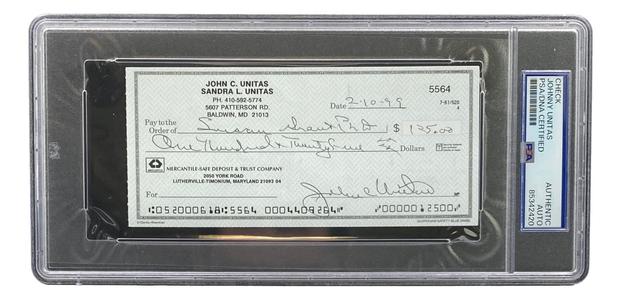 JOHN C. UNITAS
SANDRA L. UNITAS
PH. 410-592-5774
5607 PATTERSON RD.
BALDWIN, MD 21013
5564
7-61/520
4
Date 2-10-99
Pay to the
Order of Susan Grant PhD $ 125.00
One Hundred & Twenty Five Dollars
MERCANTILE-SAFE DEPOSIT & TRUST COMPANY
2050 YORK ROAD
LUTHERVILLE-TIMONIUM, MARYLAND 21093 04
For
John C Unitas
⑆052000618⑆5564 0004409264⑈ ⑈0000012500⑈
CHECK
JOHNNY UNITAS
PSA/DNA CERTIFIED
PSA
AUTHENTIC
AUTO
85342420